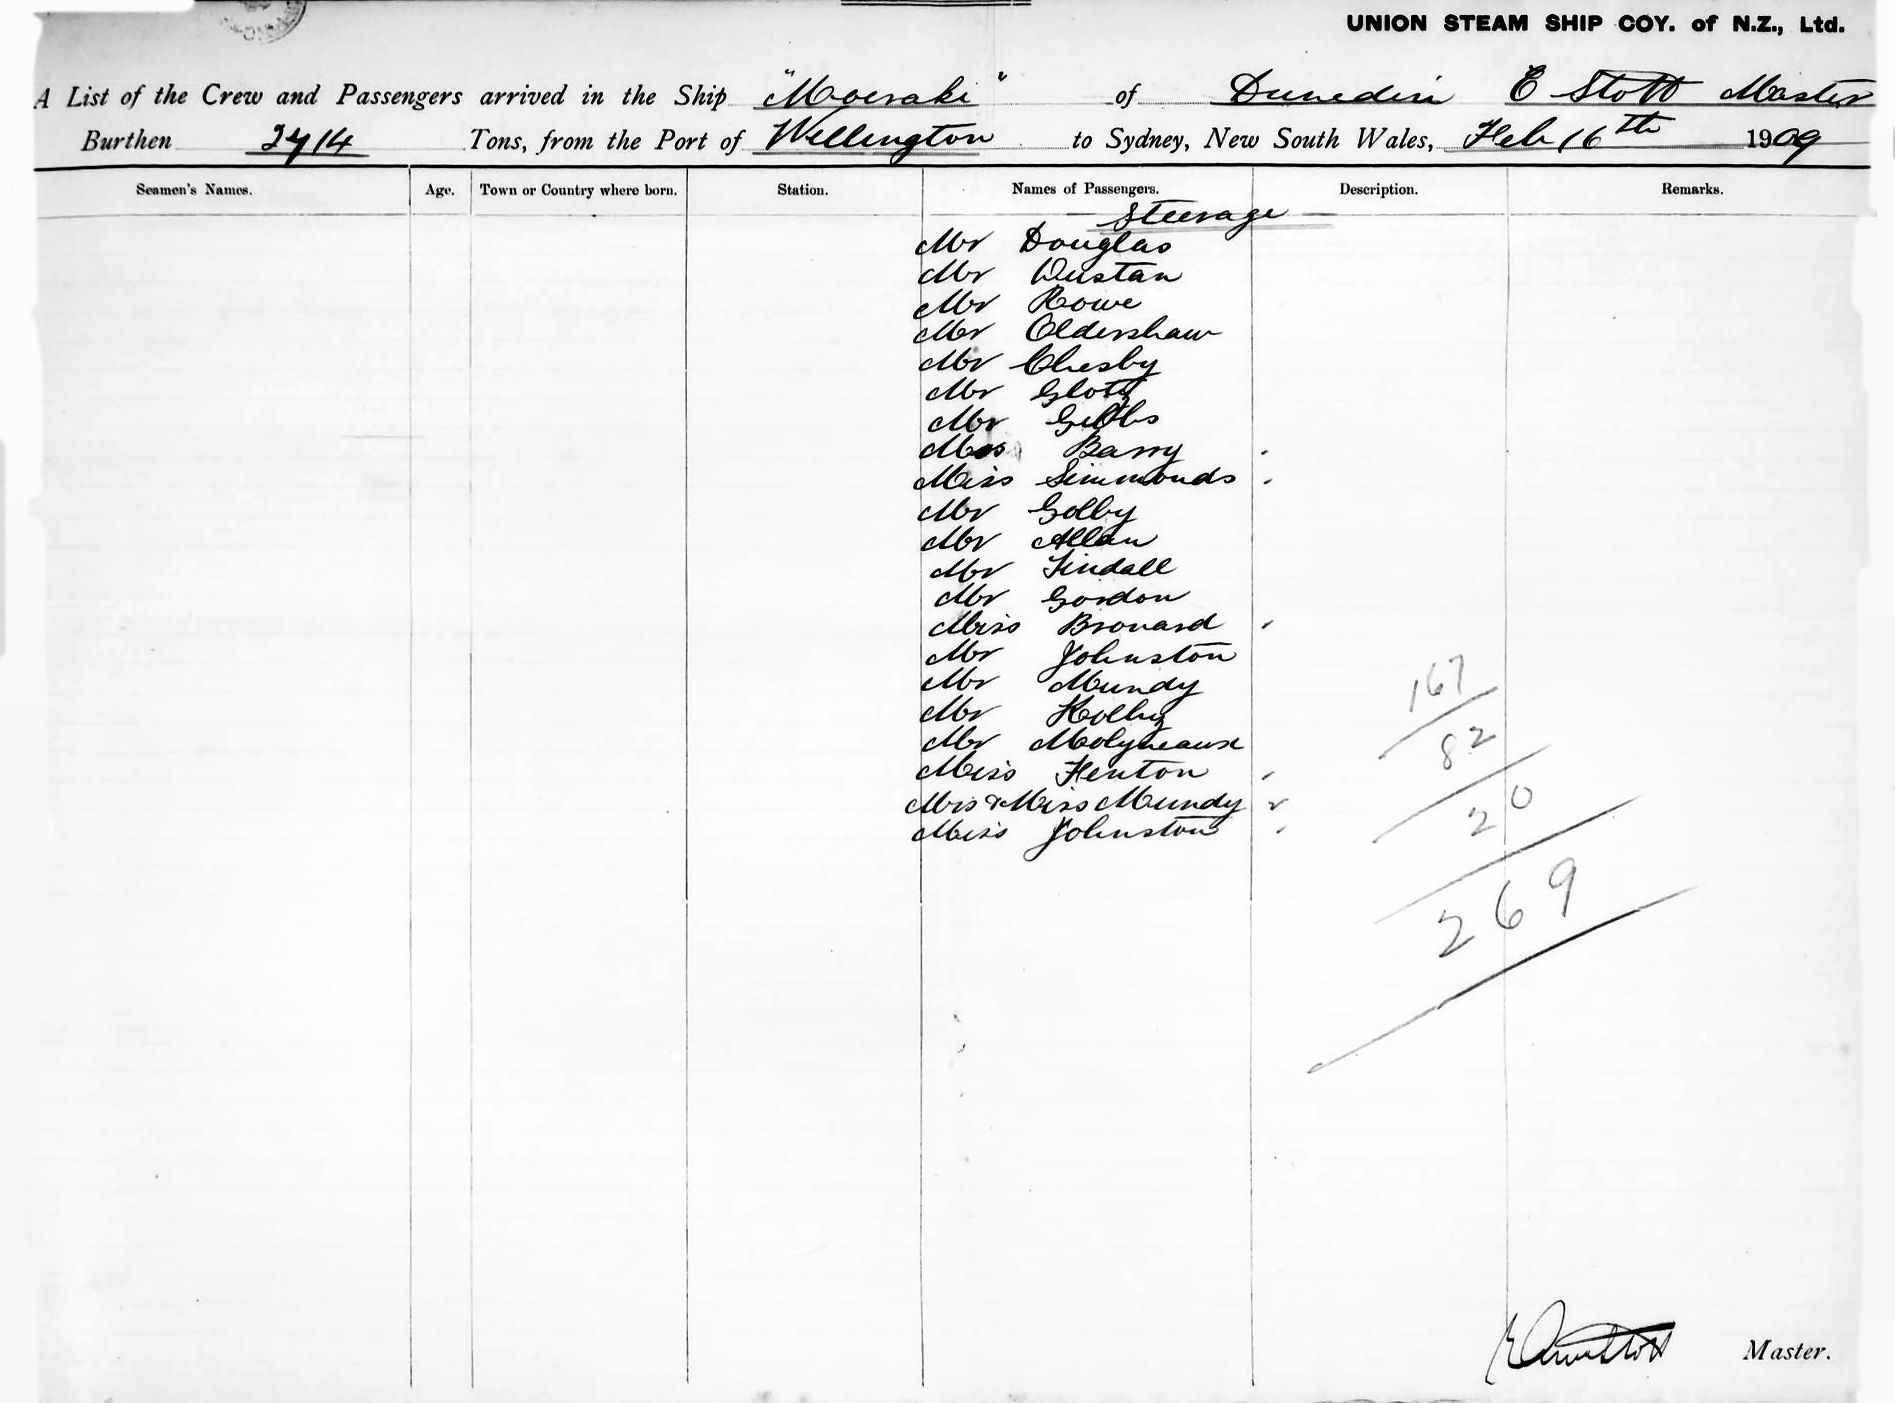 UNION STEAM SHIP COY. of N.Z., Ltd.
A List of the Crew and Passengers arrived in the Ship "Moeraki" of Dunedin E Stott Master
Burthen 2714 Tons, from the Port of Wellington to Sydney, New South Wales, Feb 16th 1909
Seamen's Names. Age. Town or Country where born. Station. Names of Passengers. Description. Remarks.
Steerage
Mr Douglas
Mr Dustan
Mr Rowe
Mr Oldershaw
Mr Chesby
Mr Glotz
Mr Gibbs
Barry
Miss Simmonds
Mr Golby
Mr Allan
Mr Tindall
Mr Gordon
Miss Bronard
Mr Johnston
Mr Mundy
Mr Holby
Mr Molyneaux
Miss Fenton
Mrs & Miss Mundy
Miss Johnston
167
82
20
269
Master.